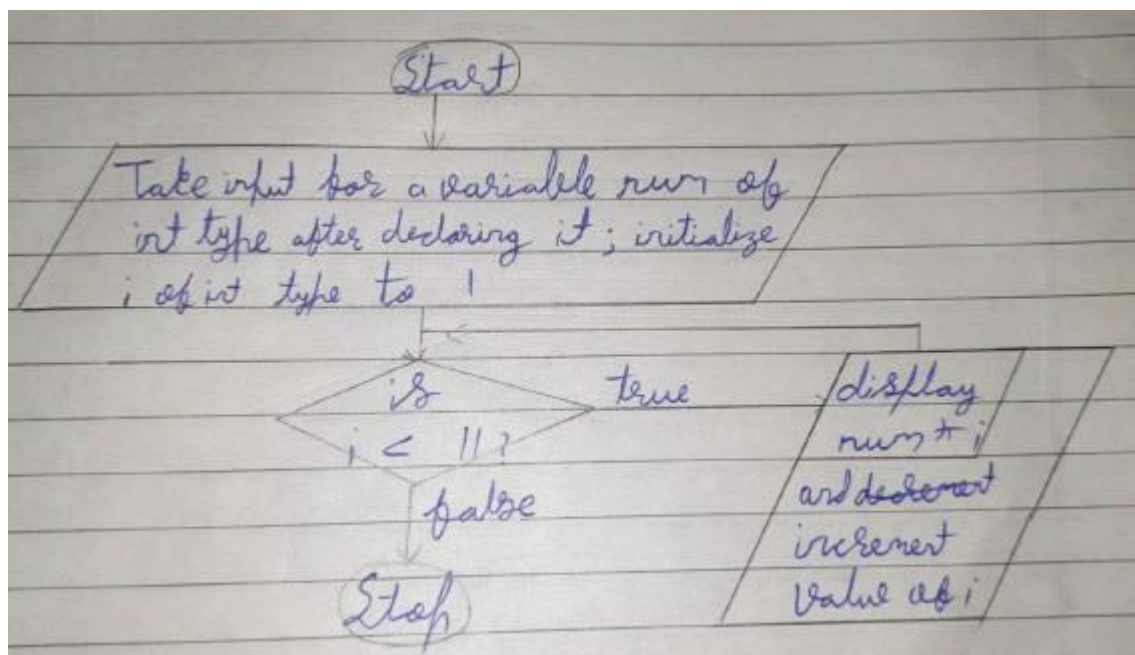 Start
Take input for a variable num of
int type after declaring it ; initialize
i of int type to 1
is
i < 11?
true
false
display
num * i
and decrement
increment
value of i
Stop